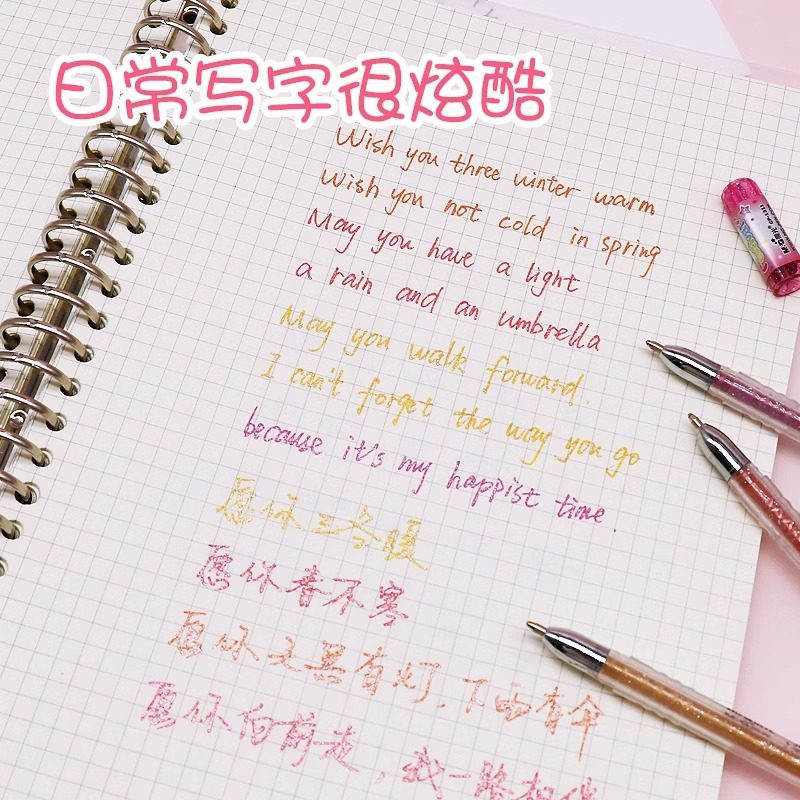 日常写字很炫酷
Wish you three winter warm
Wish you not cold in spring
May you have a light
a rain and an umbrella
May you walk forward.
I can't forget the way you go
because it's my happist time.
愿你三冬暖
愿你春不寒
愿你天黑有灯,下雨有伞
愿你向前走,我一路相伴